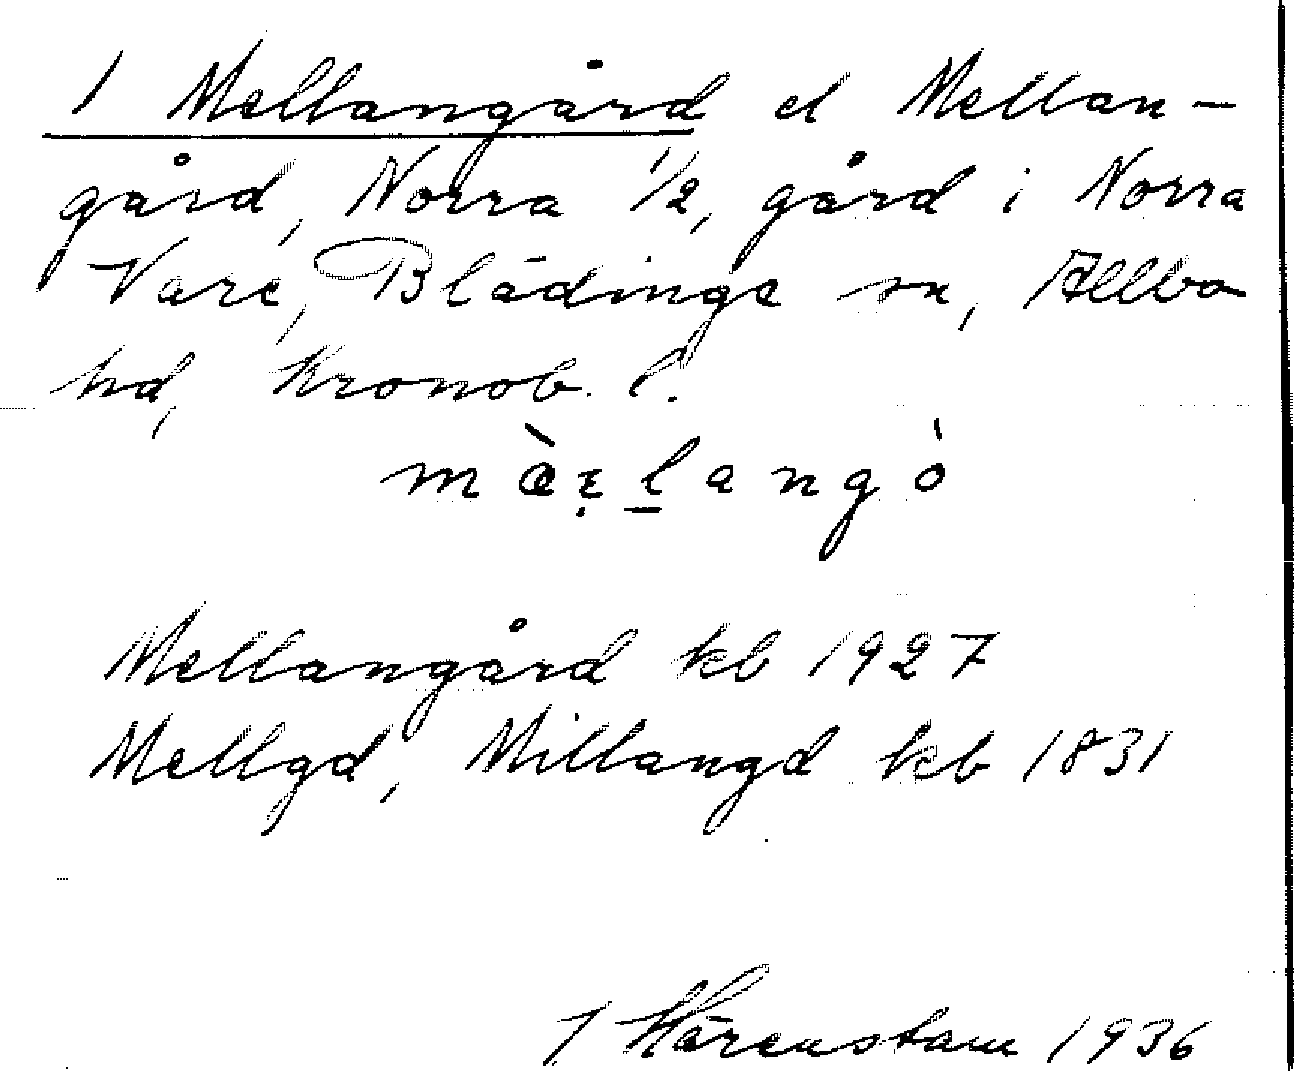 1 Mellangård el Mellan-
gård, Norra 1/2, gård i Norra
Vare, Blädinge sn, Allbo
hd, Kronob. l.
Mellangård kb 1927
Mellgd, Millangd kb 1831
J Härenstam 1936